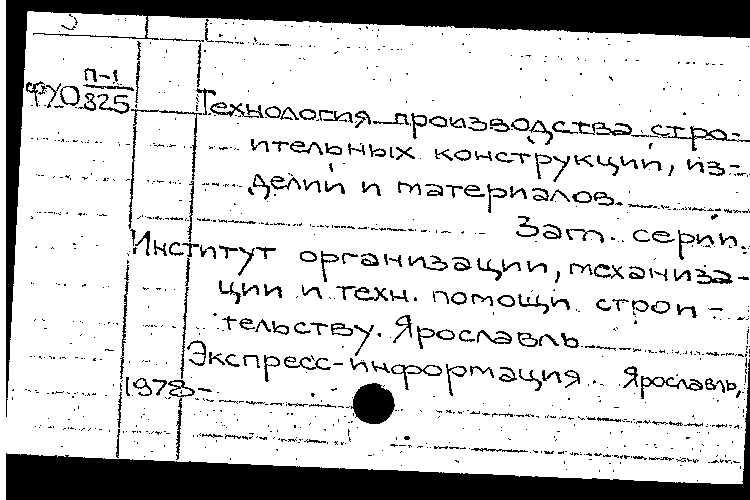 П-1
ФХО 825
Технология производства стро-
ительных конструкций, из-
делий и материалов.
Заг. серии.
Институт организации, механиза-
ции и техн. помощи строи-
тельству. Ярославль
Экспресс-информация. Ярославль,
1978-